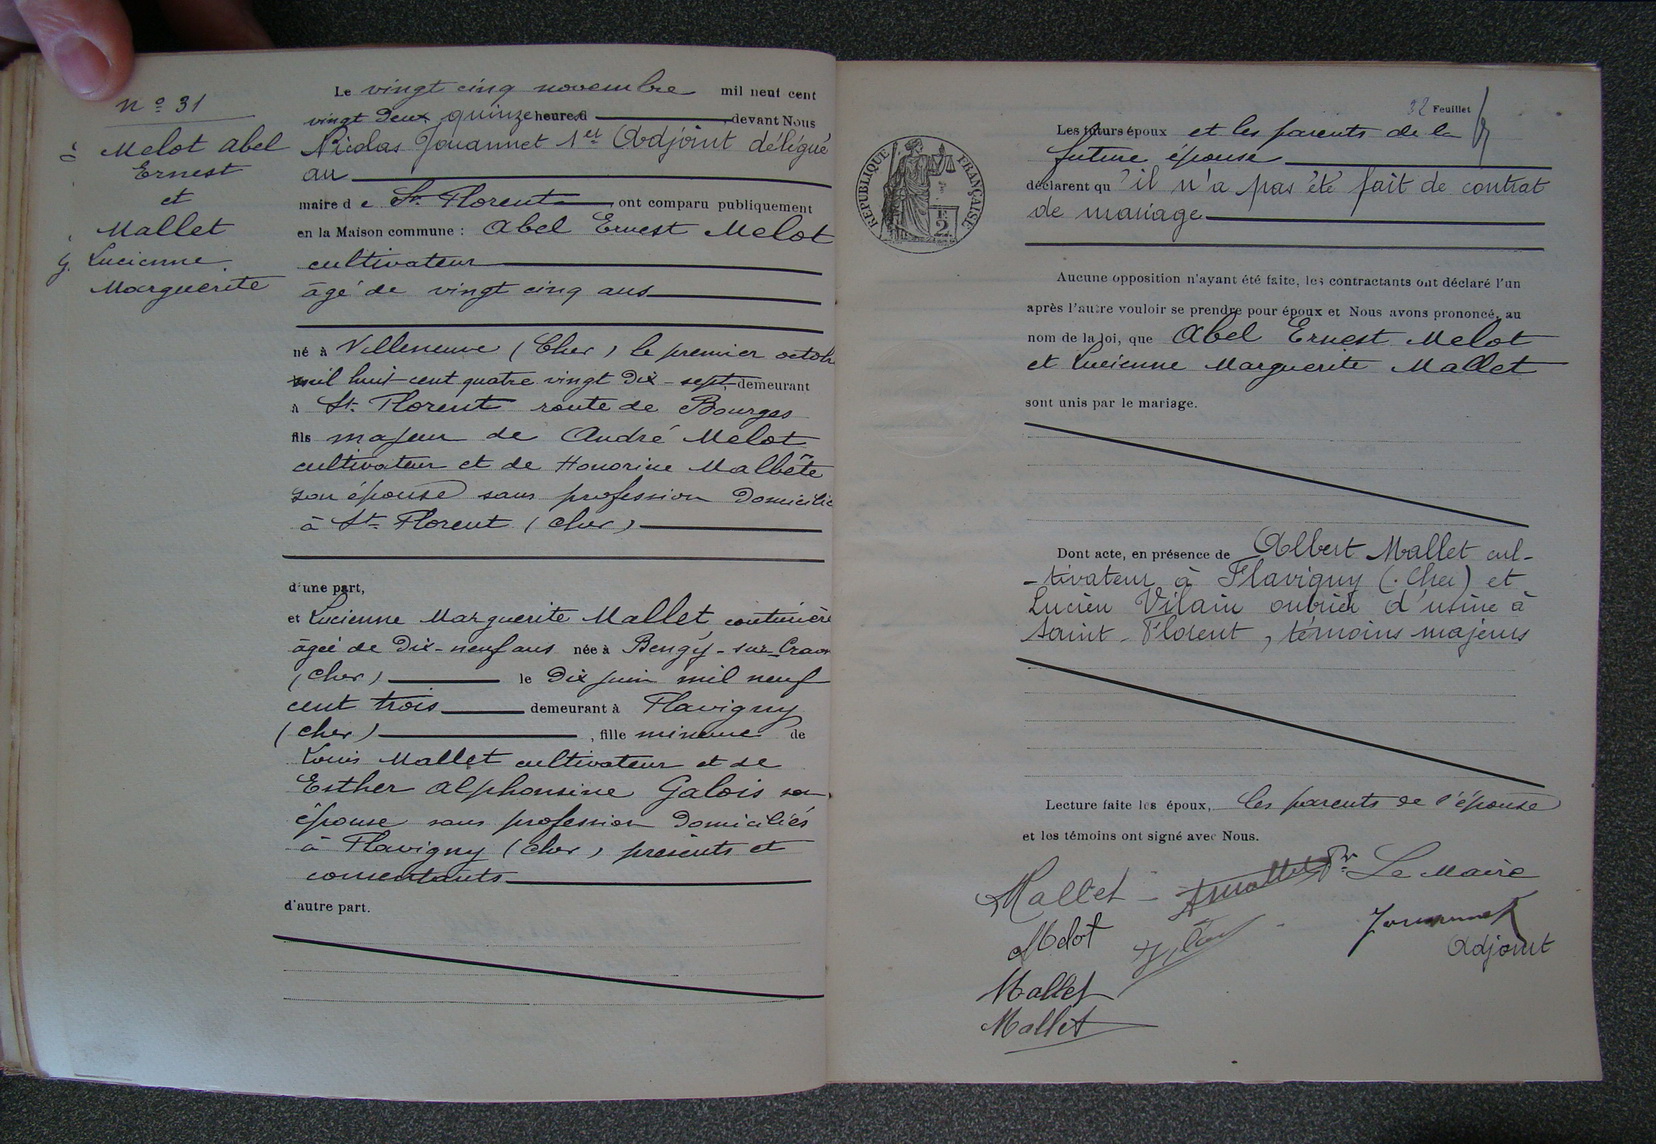 n° 31
Melot Abel
Ernest
et
Mallet
Lucienne
Marguerite
Le vingt cinq novembre mil neuf cent
vingt deux quinze heures devant Nous
Nicolas Jouannet 1er Adjoint délégué
au
maire de St Florent ont comparu publiquement
en la Maison commune : Abel Ernest Melot
cultivateur
âgé de vingt cinq ans
né à Villeneuve (Cher) le premier octob
mil huit cent quatre vingt dix-sept demeurant
à St Florent route de Bourges
fils majeur de André Melot
cultivateur et de Honorine Malbête
son épouse sans profession domicilié
à St Florent (Cher)
d'une part,
et Lucienne Marguerite Mallet couturière
âgée de Dix-neuf ans née à Bengy-sur-Craon
(Cher) le dix juin mil neuf
cent trois demeurant à Flavigny
(Cher) , fille mineure de
Louis Mallet cultivateur et de
Esther Alphonsine Galois son
épouse sans profession domiciliés
à Flavigny (Cher) présents et
consentants
d'autre part.
32 Feuillet
RÉPUBLIQUE FRANÇAISE
2
Les futurs époux et les parents de la
future épouse
déclarent qu'il n'a pas été fait de contrat
de mariage
Aucune opposition n'ayant été faite, les contractants ont déclaré l'un
après l'autre vouloir se prendre pour époux et Nous avons prononcé, au
nom de la loi, que Abel Ernest Melot
et Lucienne Marguerite Mallet
sont unis par le mariage.
Dont acte, en présence de Albert Mallet cul-
-tivateur à Flavigny (Cher) et
Lucien Vilain ouvrier d'usine à
Saint-Florent, témoins majeurs
Lecture faite les époux, les parents de l'épouse
et les témoins ont signé avec Nous.
Mallet A Mallet Pr Le Maire
Melot Jouannet
Adjoint
Mallet
Mallet